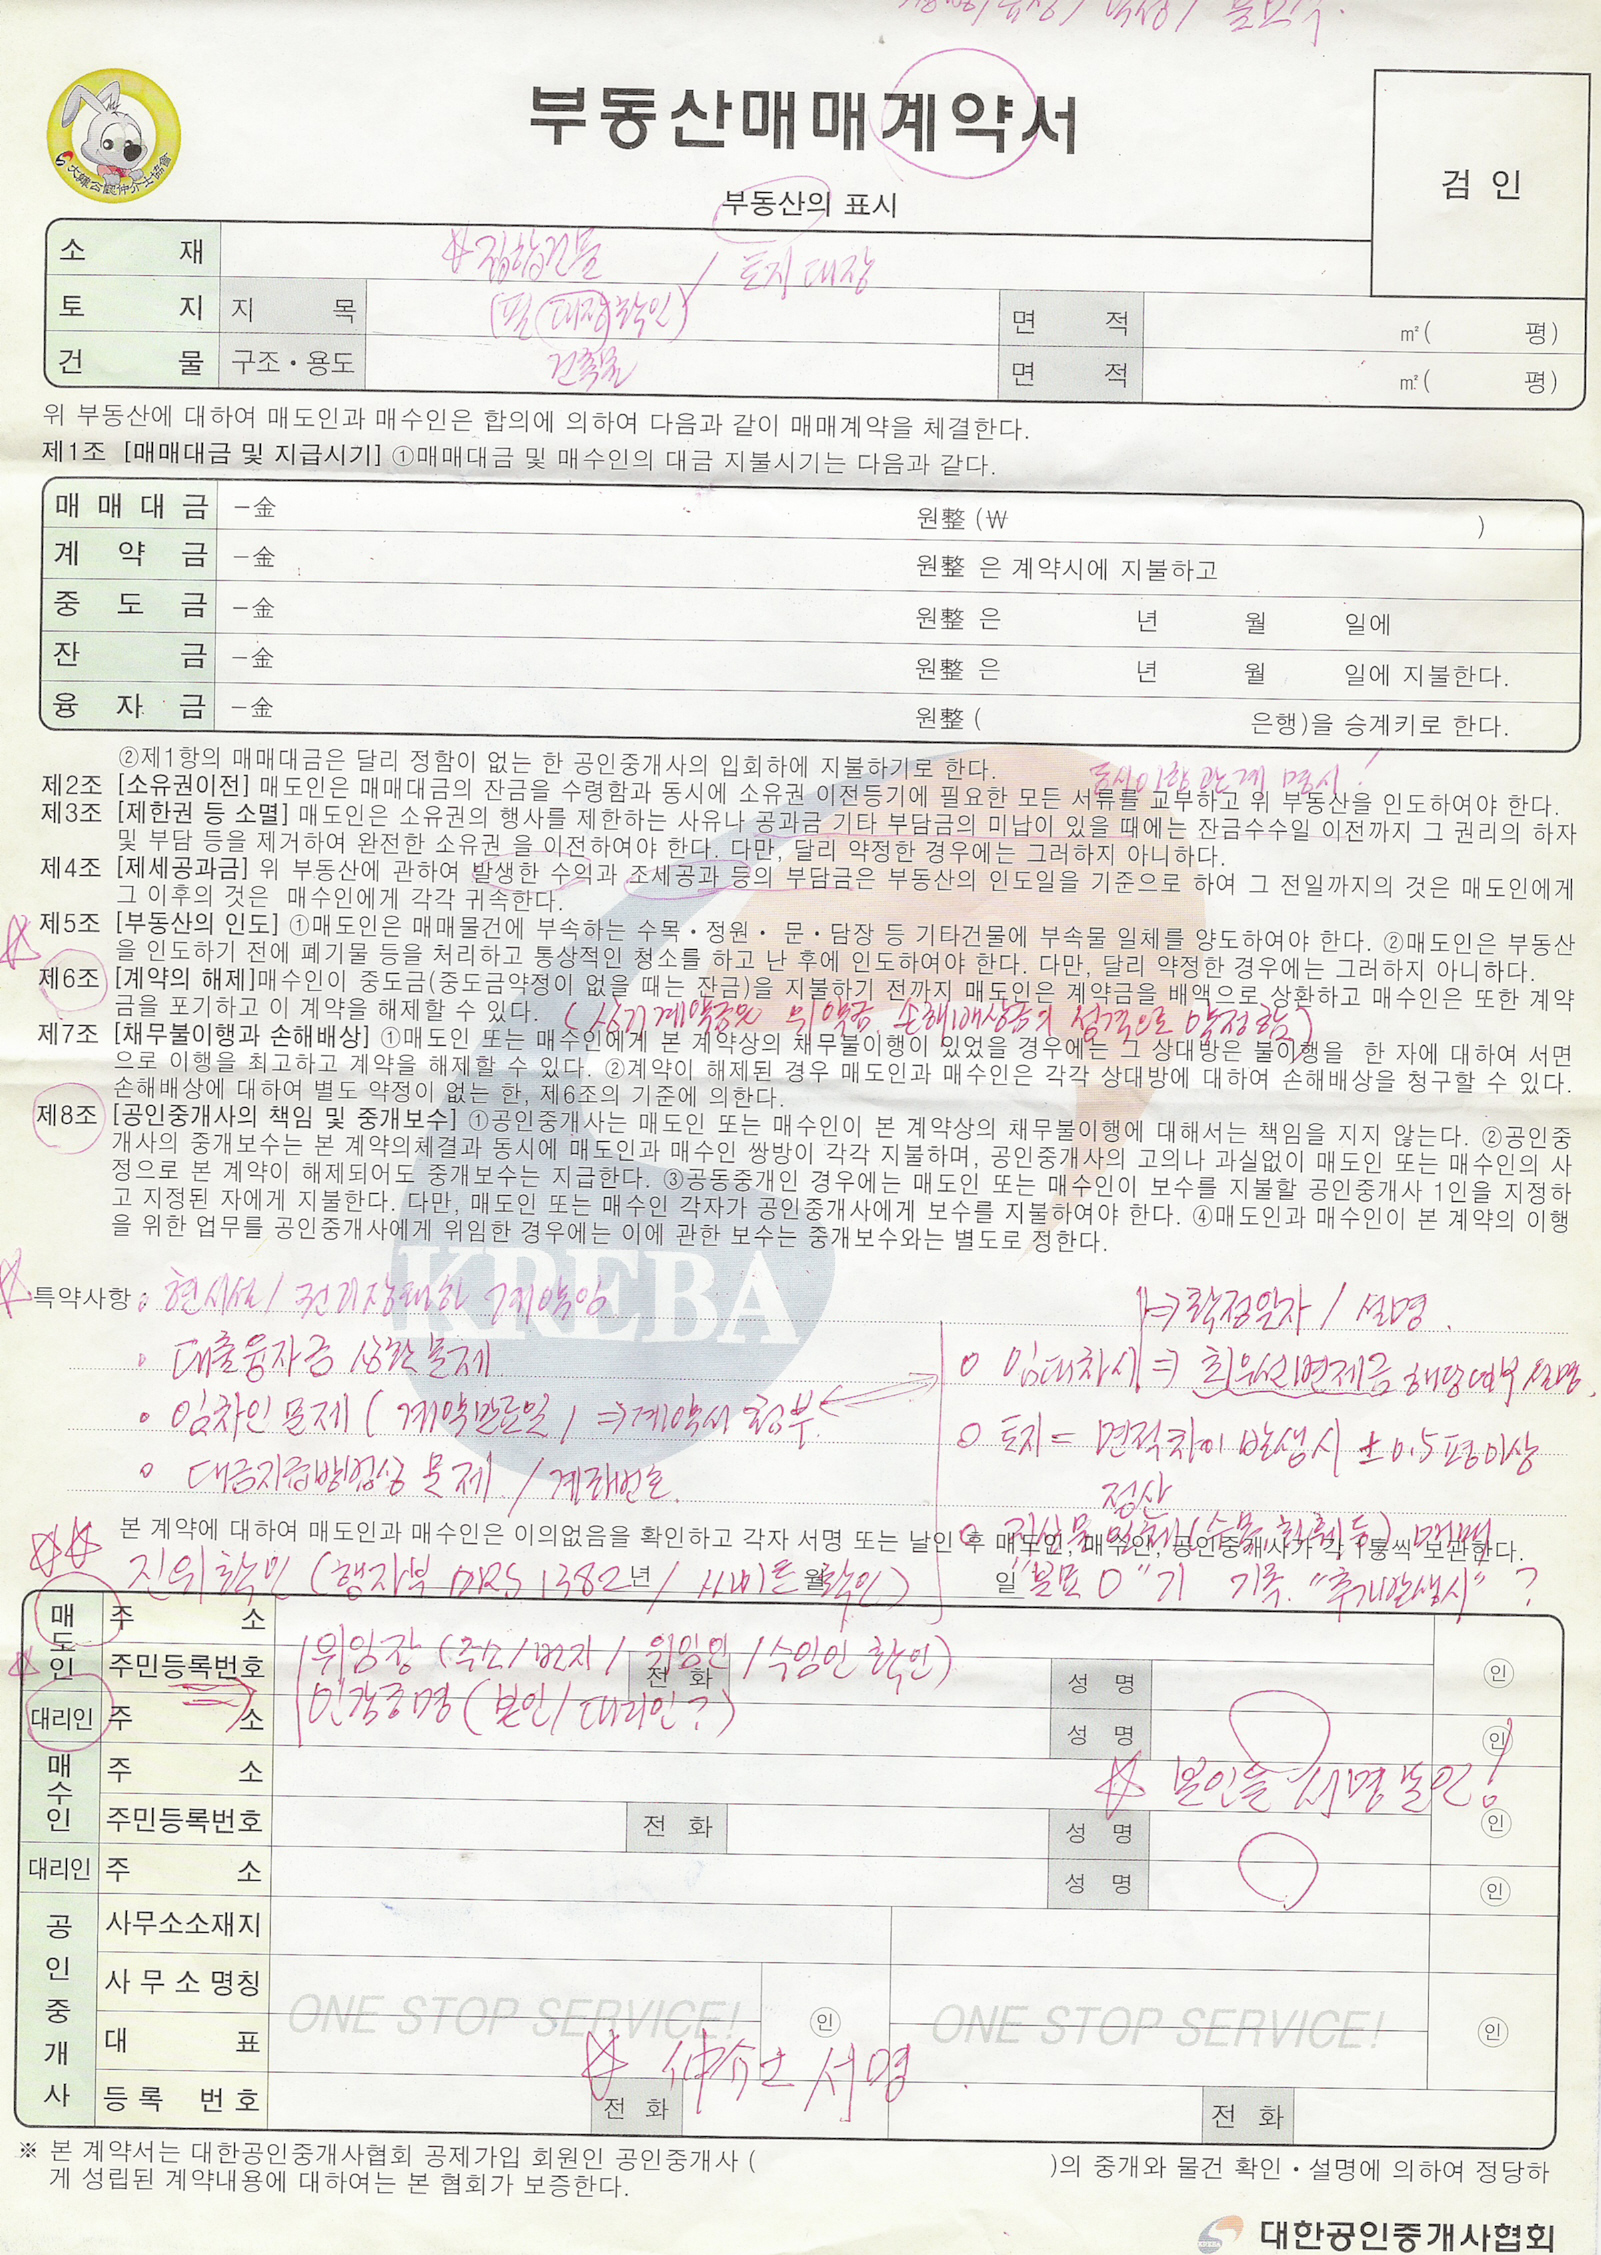 부동산매매계약서
검 인
大韓公認仲介士協會
부동산의 표시
소 재
☆집합건물 / 토지대장
토 지 지 목 (필 대장 확인) 면 적 ㎡( 평)
건 물 구조·용도 건축물 면 적 ㎡( 평)
위 부동산에 대하여 매도인과 매수인은 합의에 의하여 다음과 같이 매매계약을 체결한다.
제1조 [매매대금 및 지급시기] ①매매대금 및 매수인의 대금 지불시기는 다음과 같다.
매매대금 -金 원整 (₩ )
계 약 금 -金 원整 은 계약시에 지불하고
중 도 금 -金 원整 은 년 월 일에
잔 금 -金 원整 은 년 월 일에 지불한다.
융 자 금 -金 원整 ( 은행)을 승계키로 한다.
②제1항의 매매대금은 달리 정함이 없는 한 공인중개사의 입회하에 지불하기로 한다.
동시이행 관계 명시!
제2조 [소유권이전] 매도인은 매매대금의 잔금을 수령함과 동시에 소유권 이전등기에 필요한 모든 서류를 교부하고 위 부동산을 인도하여야 한다.
제3조 [제한권 등 소멸] 매도인은 소유권의 행사를 제한하는 사유나 공과금 기타 부담금의 미납이 있을 때에는 잔금수수일 이전까지 그 권리의 하자
및 부담 등을 제거하여 완전한 소유권 을 이전하여야 한다. 다만, 달리 약정한 경우에는 그러하지 아니하다.
제4조 [제세공과금] 위 부동산에 관하여 발생한 수익과 조세공과 등의 부담금은 부동산의 인도일을 기준으로 하여 그 전일까지의 것은 매도인에게
그 이후의 것은 매수인에게 각각 귀속한다.
제5조 [부동산의 인도] ①매도인은 매매물건에 부속하는 수목·정원· 문·담장 등 기타건물에 부속물 일체를 양도하여야 한다. ②매도인은 부동산
을 인도하기 전에 폐기물 등을 처리하고 통상적인 청소를 하고 난 후에 인도하여야 한다. 다만, 달리 약정한 경우에는 그러하지 아니하다.
제6조 [계약의 해제]매수인이 중도금(중도금약정이 없을 때는 잔금)을 지불하기 전까지 매도인은 계약금을 배액으로 상환하고 매수인은 또한 계약
금을 포기하고 이 계약을 해제할 수 있다.
(상기계약금은 위약금, 손해배상금의 성격으로 약정함)
제7조 [채무불이행과 손해배상] ①매도인 또는 매수인에게 본 계약상의 채무불이행이 있었을 경우에는 그 상대방은 불이행을 한 자에 대하여 서면
으로 이행을 최고하고 계약을 해제할 수 있다. ②계약이 해제된 경우 매도인과 매수인은 각각 상대방에 대하여 손해배상을 청구할 수 있다.
손해배상에 대하여 별도 약정이 없는 한, 제6조의 기준에 의한다.
제8조 [공인중개사의 책임 및 중개보수] ①공인중개사는 매도인 또는 매수인이 본 계약상의 채무불이행에 대해서는 책임을 지지 않는다. ②공인중
개사의 중개보수는 본 계약의체결과 동시에 매도인과 매수인 쌍방이 각각 지불하며, 공인중개사의 고의나 과실없이 매도인 또는 매수인의 사
정으로 본 계약이 해제되어도 중개보수는 지급한다. ③공동중개인 경우에는 매도인 또는 매수인이 보수를 지불할 공인중개사 1인을 지정하
고 지정된 자에게 지불한다. 다만, 매도인 또는 매수인 각자가 공인중개사에게 보수를 지불하여야 한다. ④매도인과 매수인이 본 계약의 이행
을 위한 업무를 공인중개사에게 위임한 경우에는 이에 관한 보수는 중개보수와는 별도로 정한다.
KREBA
☆ 특약사항 : 현시설/ 계약임
⇒확정일자 / 설명.
대출융자금 상환문제
o 임대차시 ⇒ 최우선변제금 해당여부 설명.
임차인문제 (계약만료일) ⇒계약서 첨부.
o 토지= 면적차이 발생시 ±0.5평이상
정산
대금지급방법상 문제 / 계좌번호.
o 지상물일체(수목, 화훼등) 매매
본 계약에 대하여 매도인과 매수인은 이의없음을 확인하고 각자 서명 또는 날인 후 매도인, 매수인, 공인중개사가 각 1통씩 보관한다.
☆☆ 진위확인 (행자부 ARS 1382 / 확인)
년 월 일
기록. "추가발생시" ?
매도인 주 소
☆ 주민등록번호 전 화 성 명 인
위임장 (주소/번지/ 위임인 /수임인 확인)
대리인 주 소 성 명 인
인감증명 (본인/ 대리인?)
매수인 주 소
☆ 본인을 서명날인!
주민등록번호 전 화 성 명 인
대리인 주 소 성 명 인
공인중개사 사무소소재지
사무소명칭
ONE STOP SERVICE! ONE STOP SERVICE!
대 표 인 인
☆ 서명
등록 번호 전 화 전 화
※ 본 계약서는 대한공인중개사협회 공제가입 회원인 공인중개사 ( )의 중개와 물건 확인·설명에 의하여 정당하
게 성립된 계약내용에 대하여는 본 협회가 보증한다.
KREBA 대한공인중개사협회